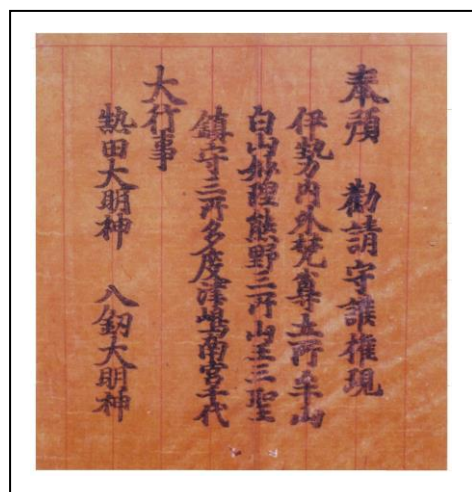 奉預　勧請守護権現
伊勢内外梵尊五所牟山
白山妙理熊野三所山王三聖
鎮守三所多度津嶋南宮千代
大行事
熱田大明神　八釼大明神